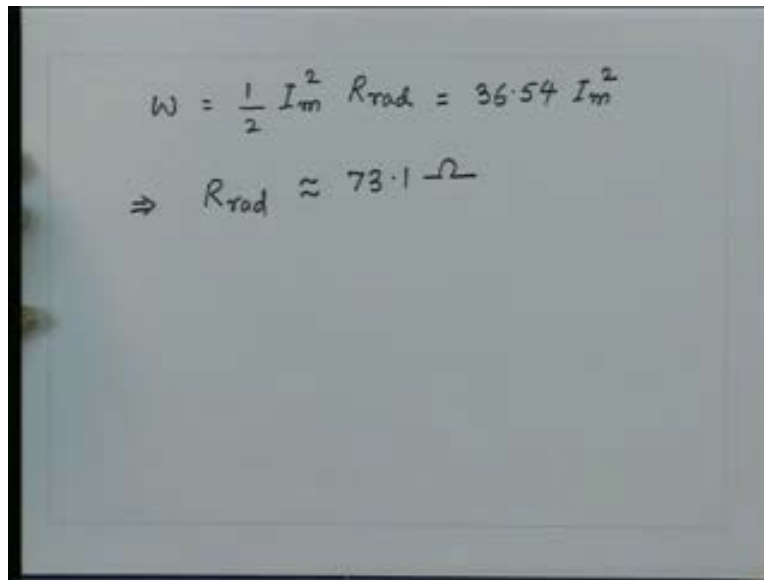 W = 1/2 I_m^2 R_rad = 36.54 I_m^2
⇒ R_rad ≈ 73.1 Ω